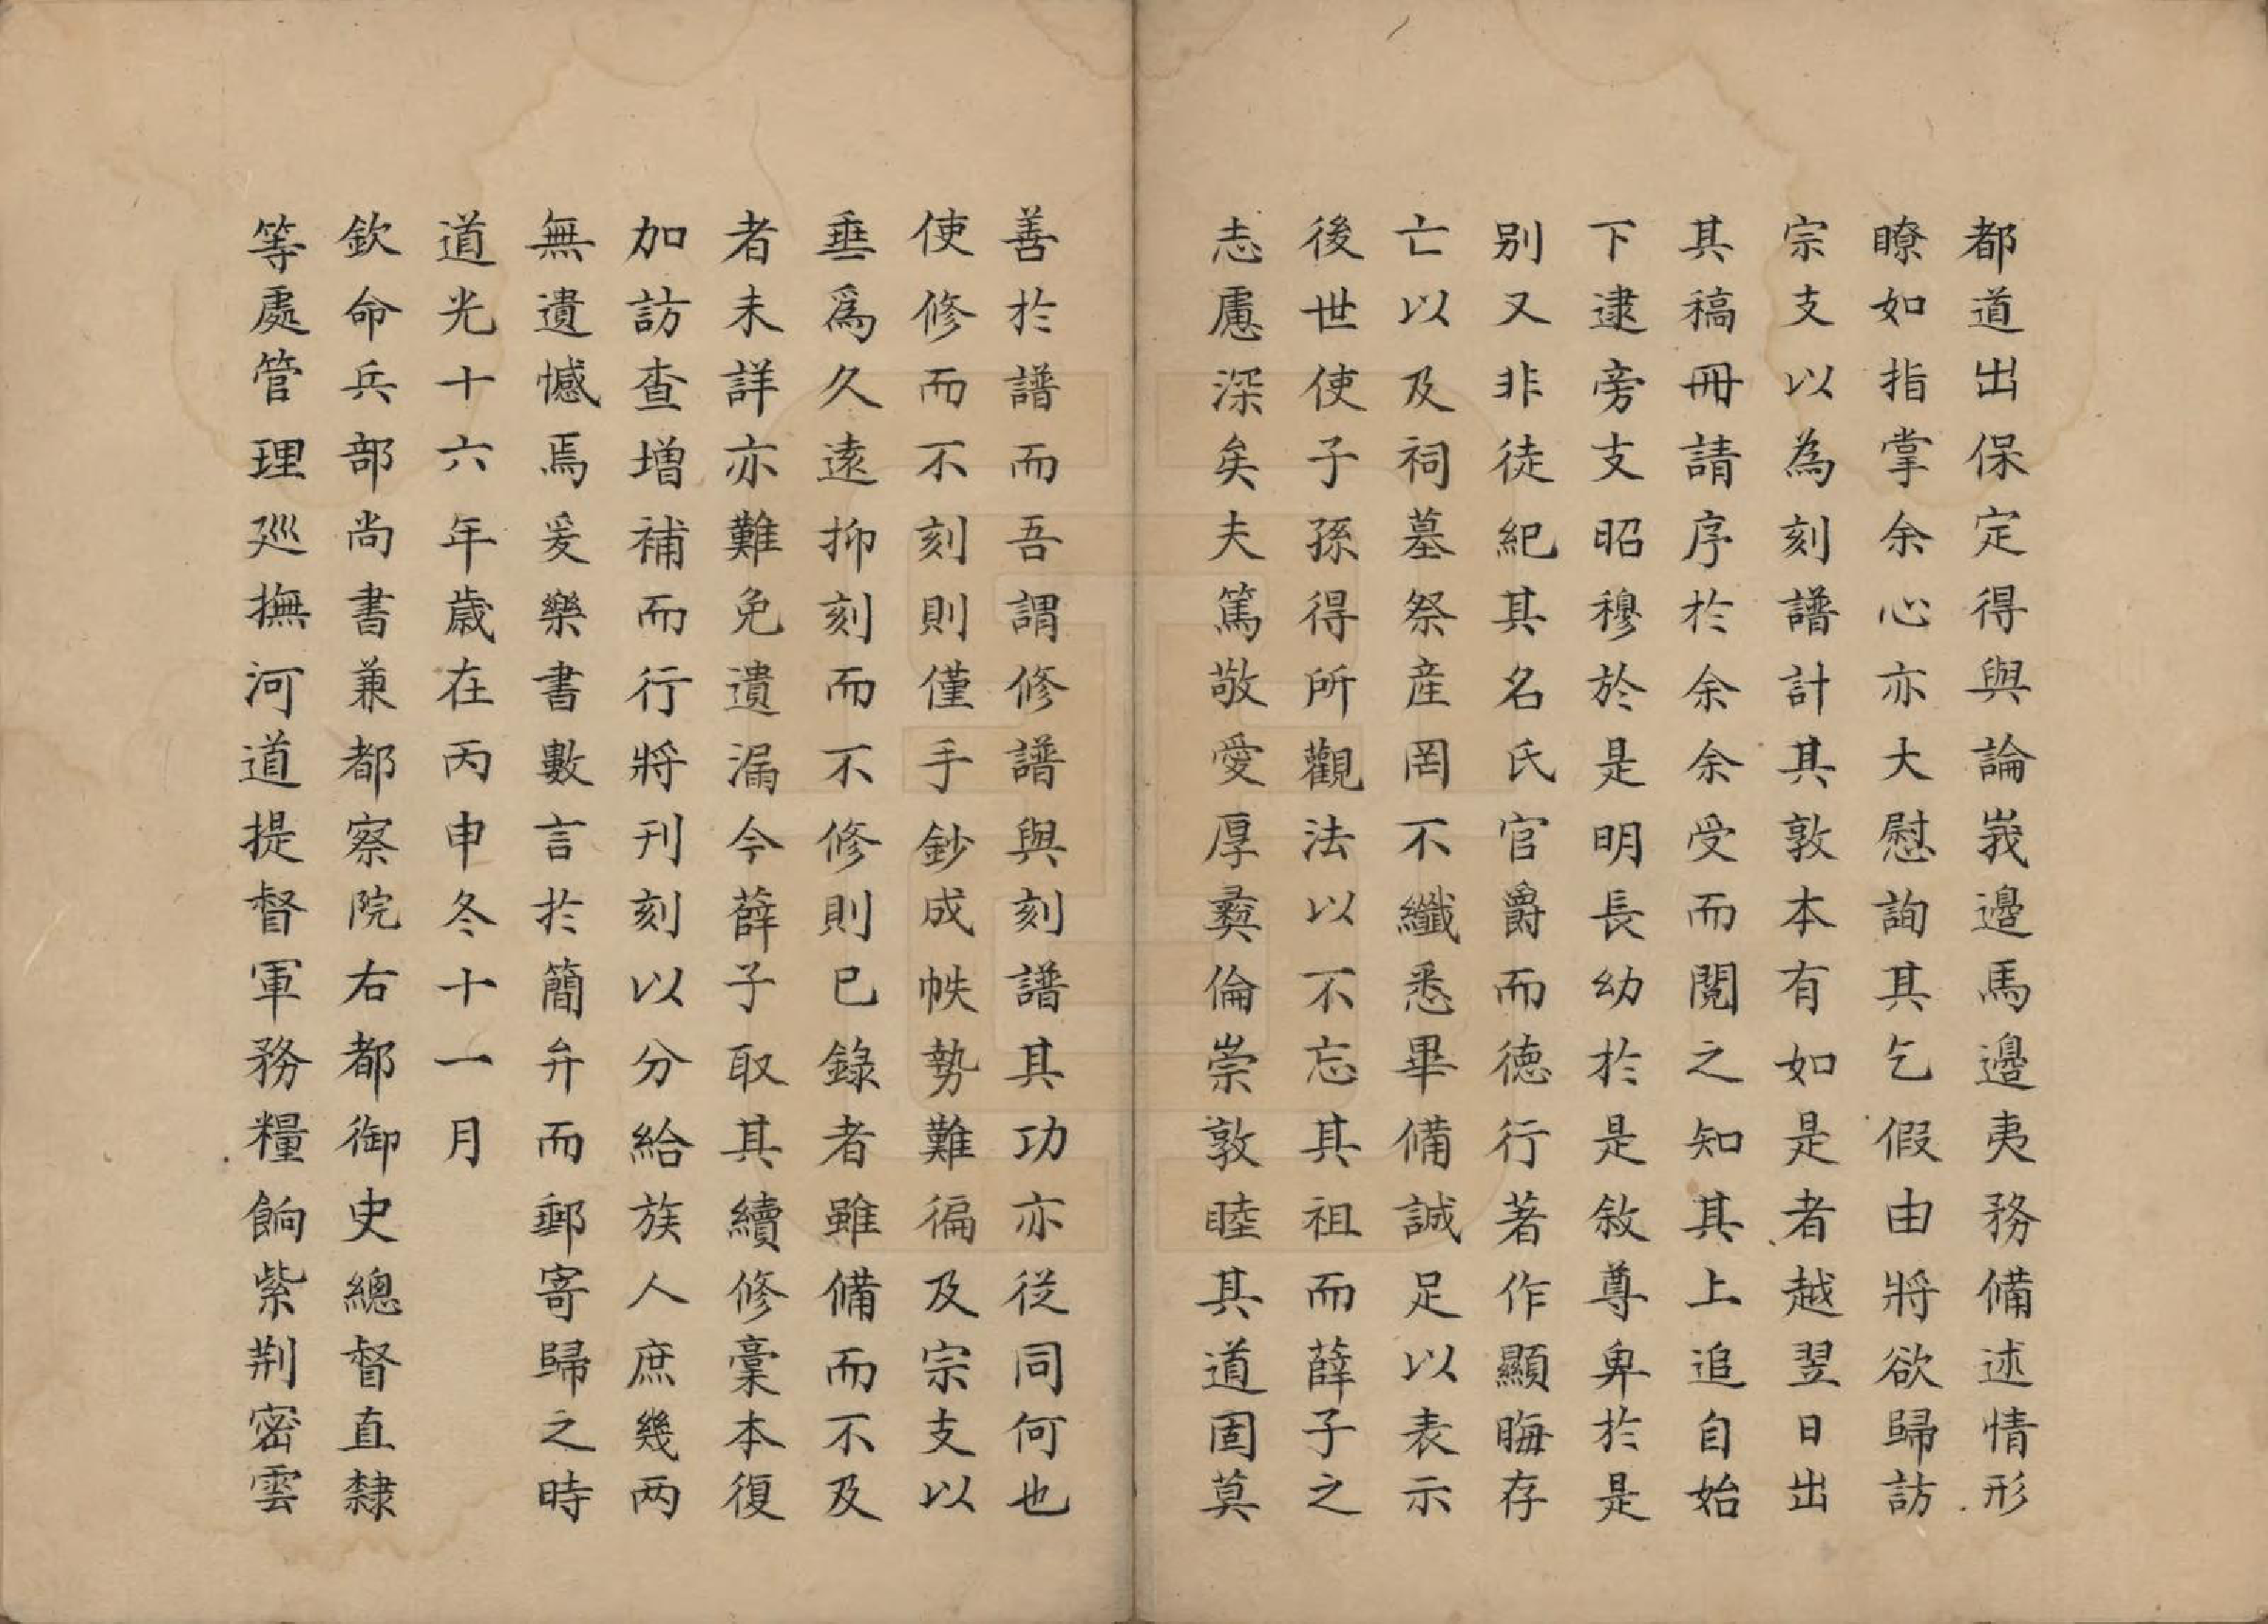 都道出保定得與論峩邊馬邊夷務備述情形
瞭如指掌余心亦大慰詢其乞假由將欲歸訪
宗支以為刻譜計其敦本有如是者越翌日出
其稿冊請序於余余受而閱之知其上追自始
下逮旁支昭穆於是明長幼於是敘尊卑於是
别又非徒紀其名氏官爵而德行著作顯晦存
亡以及祠墓祭產罔不纖悉畢備誠足以表示
後世使子孫得所觀法以不忘其祖而薛子之
志慮深矣夫篤敬愛厚彝倫崇敦睦其道固莫
善於譜而吾謂修譜與刻譜其功亦從同何也
使修而不刻則僅手鈔成帙勢難徧及宗支以
垂爲久遠抑刻而不修則已錄者雖備而不及
者未詳亦難免遺漏今薛子取其續修稾本復
加訪查增補而行將刊刻以分給族人庶幾两
無遺憾焉爰樂書數言於簡弁而郵寄歸之時
道光十六年歲在丙申冬十一月
欽命兵部尚書兼都察院右都御史總督直隸
等處管理廵撫河道提督軍務糧餉紫荆密雲